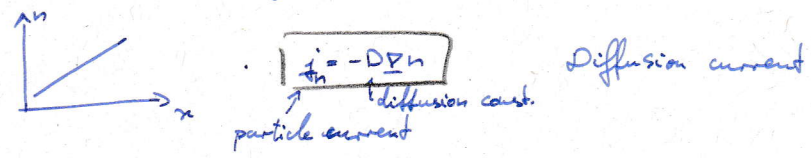 n
x
j_n = -D∇n
Diffusion current
diffusion const.
particle current